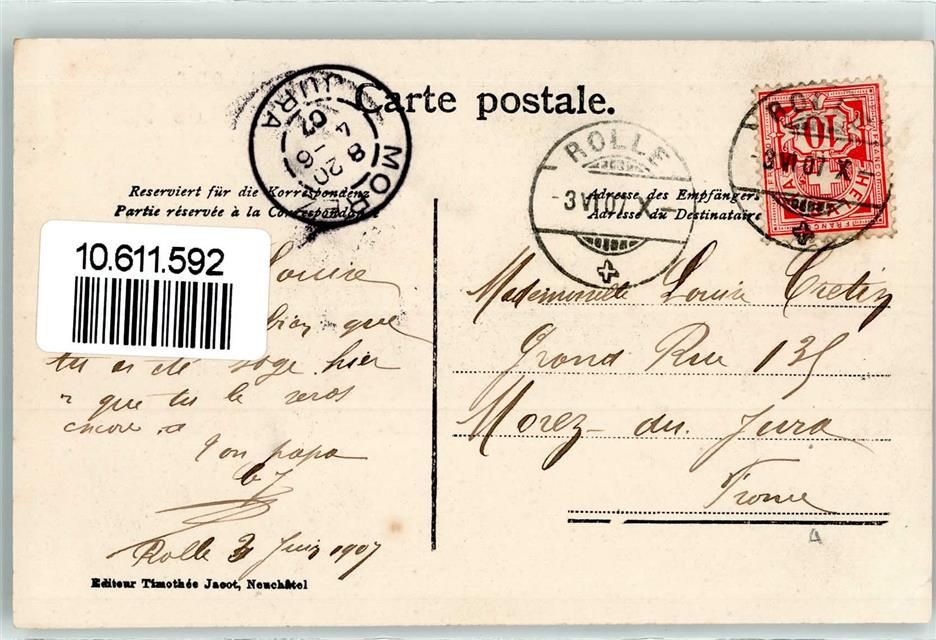 Carte postale.
MOREZ JURA
8 20
4 - 6
07
ROLLE
-3 VI 07 X-
-3 VI 07 X
10
HELVETIA
FRANCO
Reserviert für die Korrespondenz
Partie réservée à la Correspondance
Adresse des Empfängers
Adresse du Destinataire
10.611.592
Louise
bien que
tu as été sage hier
que tu le seras
encore
Ton papa
Rolle 3 Juin 1907
Editeur Timothée Jacot, Neuchâtel
Mademoiselle Louise Cretin
Grand Rue 135
Morez-du-Jura
France